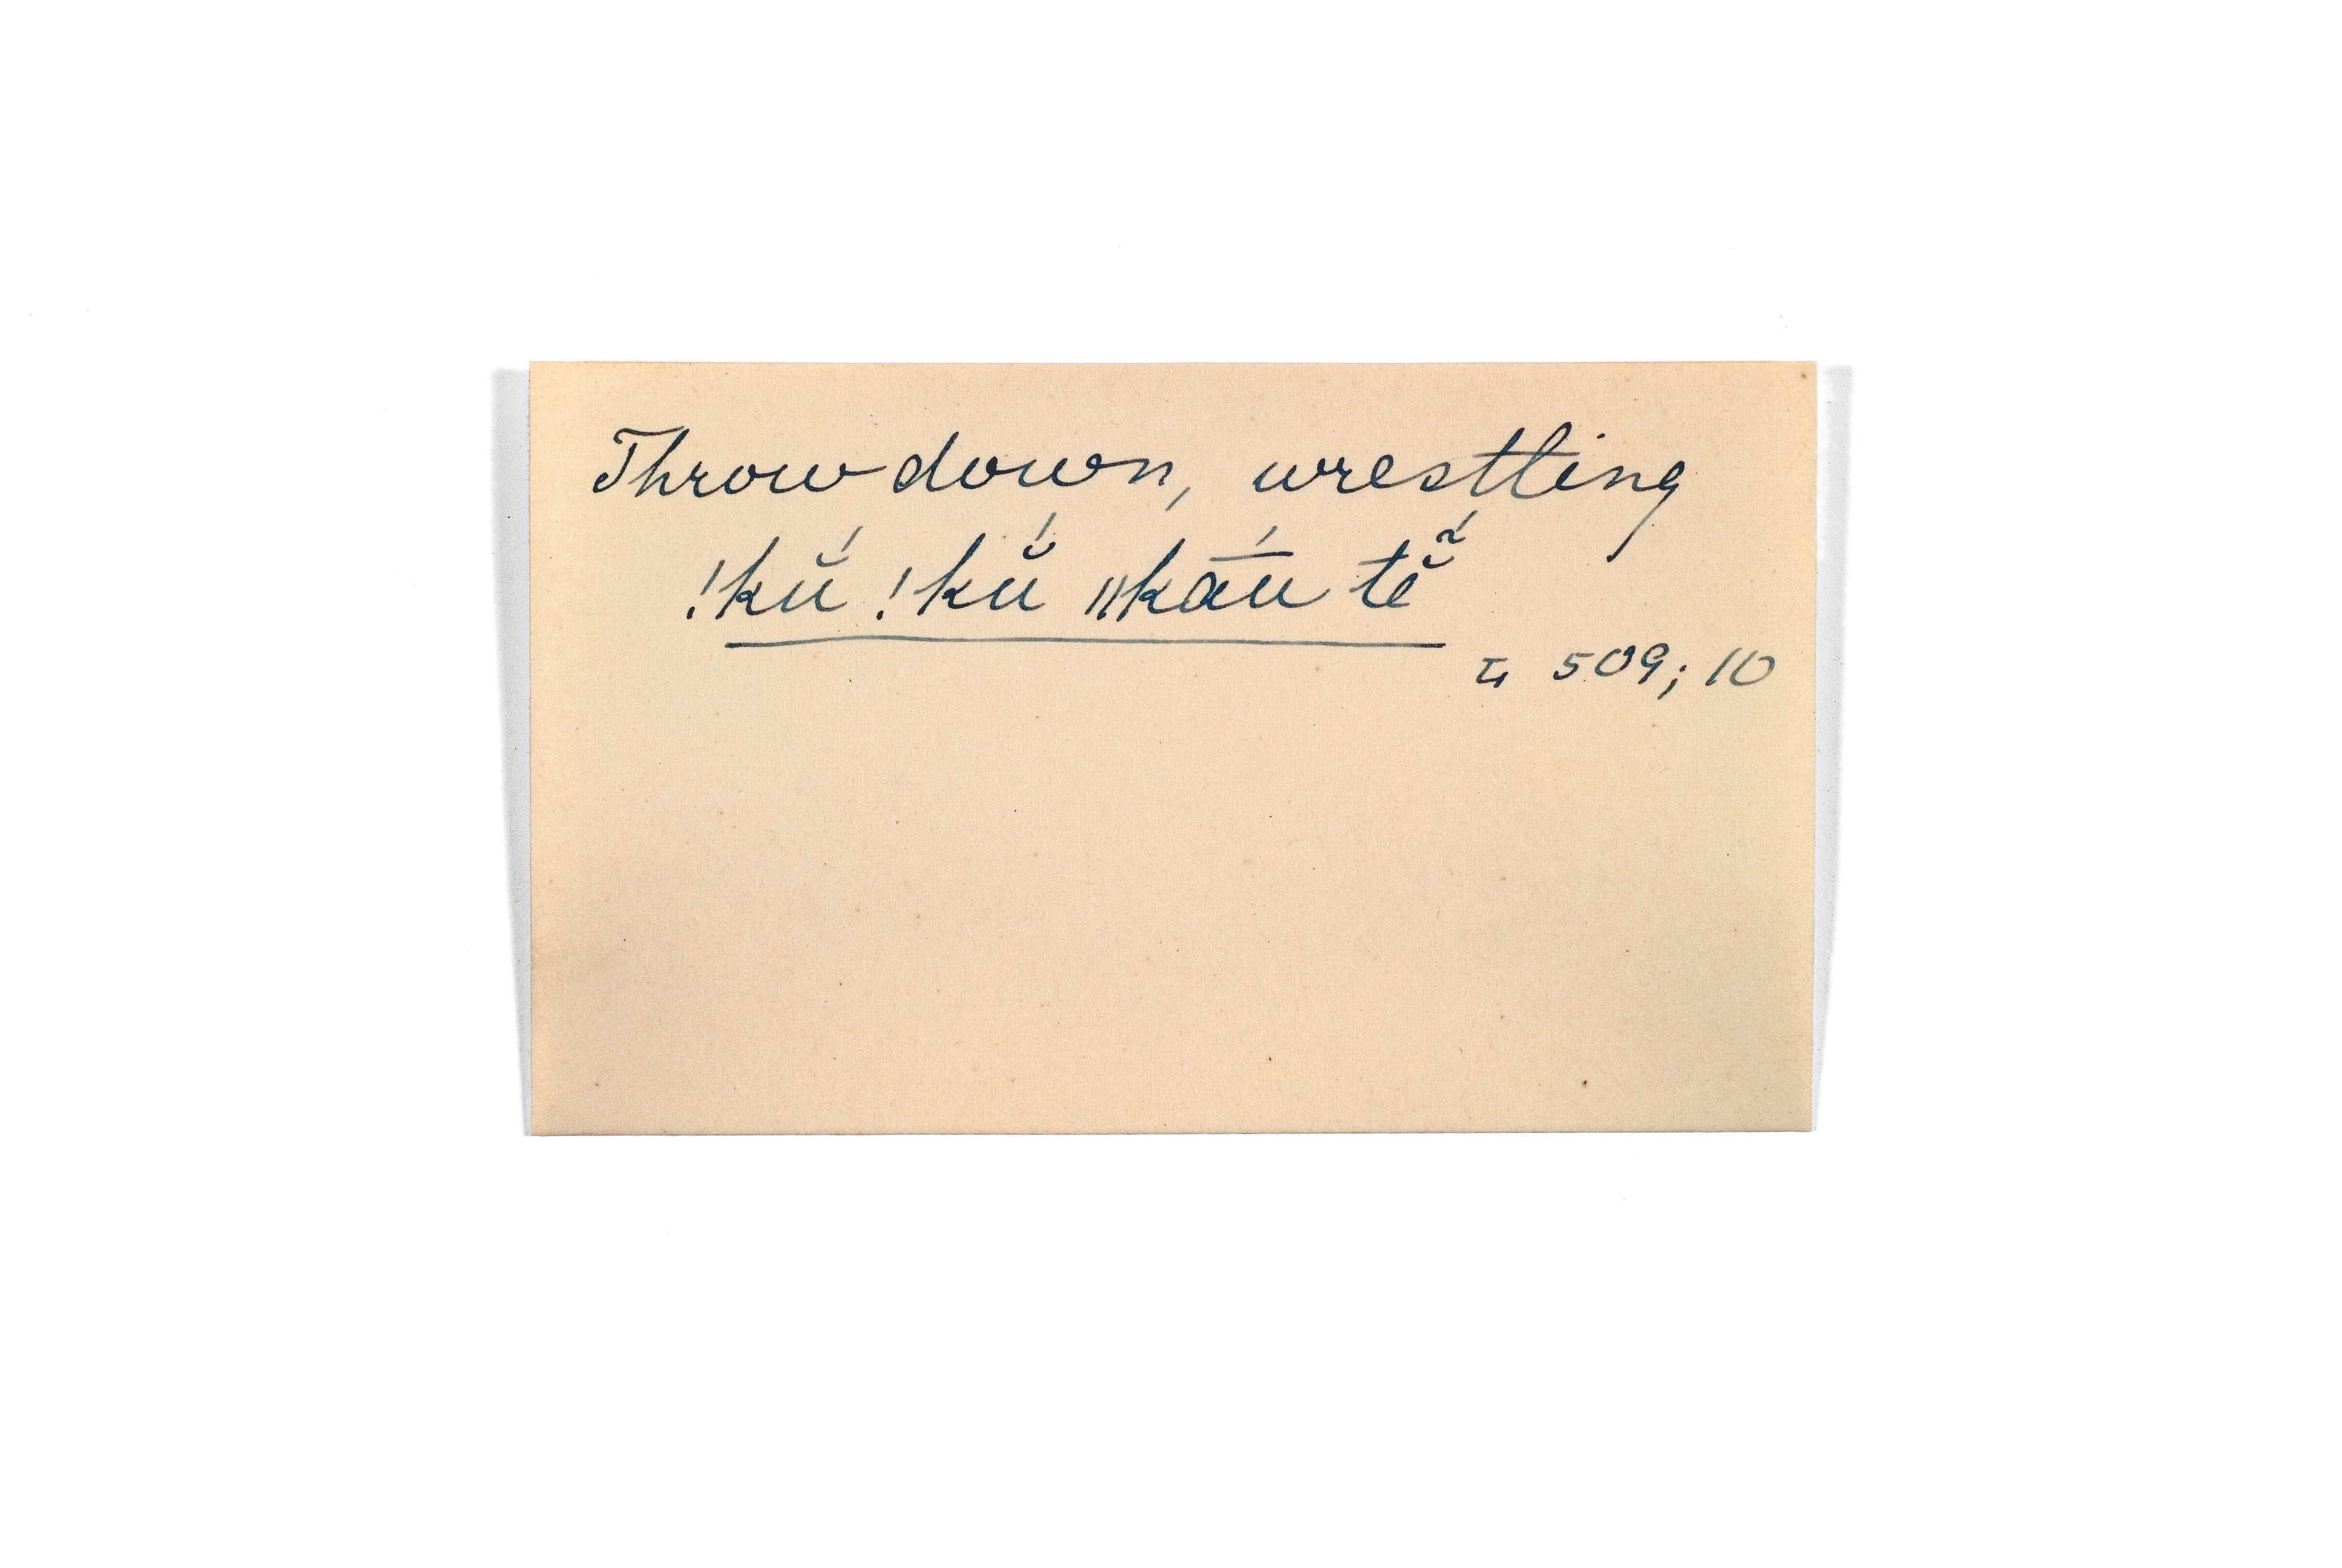 Throw down, wrestling
!kŭ́ !kŭ́ ǁkā́u tĕ̃́
509; 10